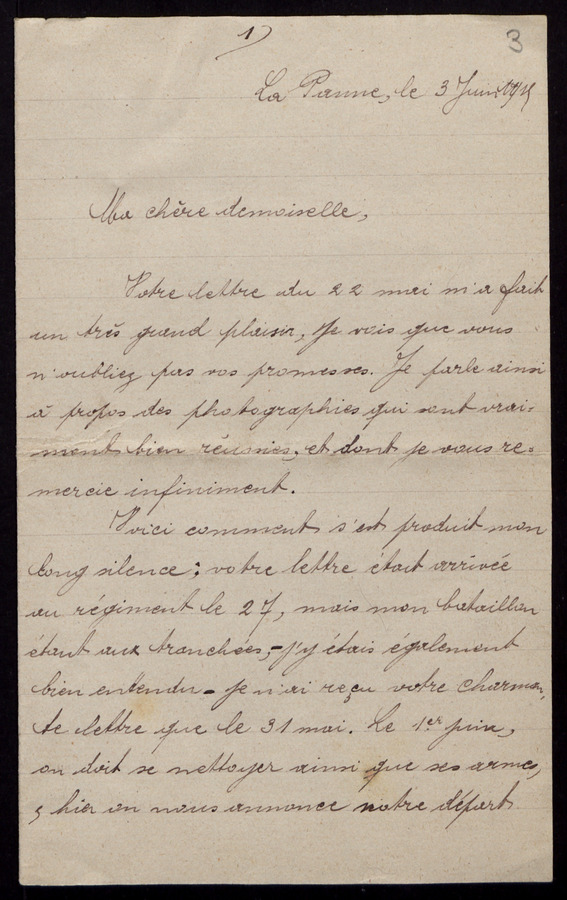 1)
3
La Panne, le 3 Juin 1915
Ma chère demoiselle,
Votre lettre du 22 mai m'a fait
un très grand plaisir, Je vois que vous
n'oubliez pas vos promesses. Je parle ainsi
à propos des photographies qui sont vrai-
ment bien réussies, et dont je vous re-
mercie infiniment.
Voici comment s'est produit mon
long silence : votre lettre était arrivée
au régiment le 27, mais mon bataillon
étant aux tranchées, - j'y étais également
bien entendu - je n'ai reçu votre charman-
te lettre que le 31 mai. Le 1er juin,
on doit se nettoyer ainsi que ses armes,
hier on nous annonce notre départ